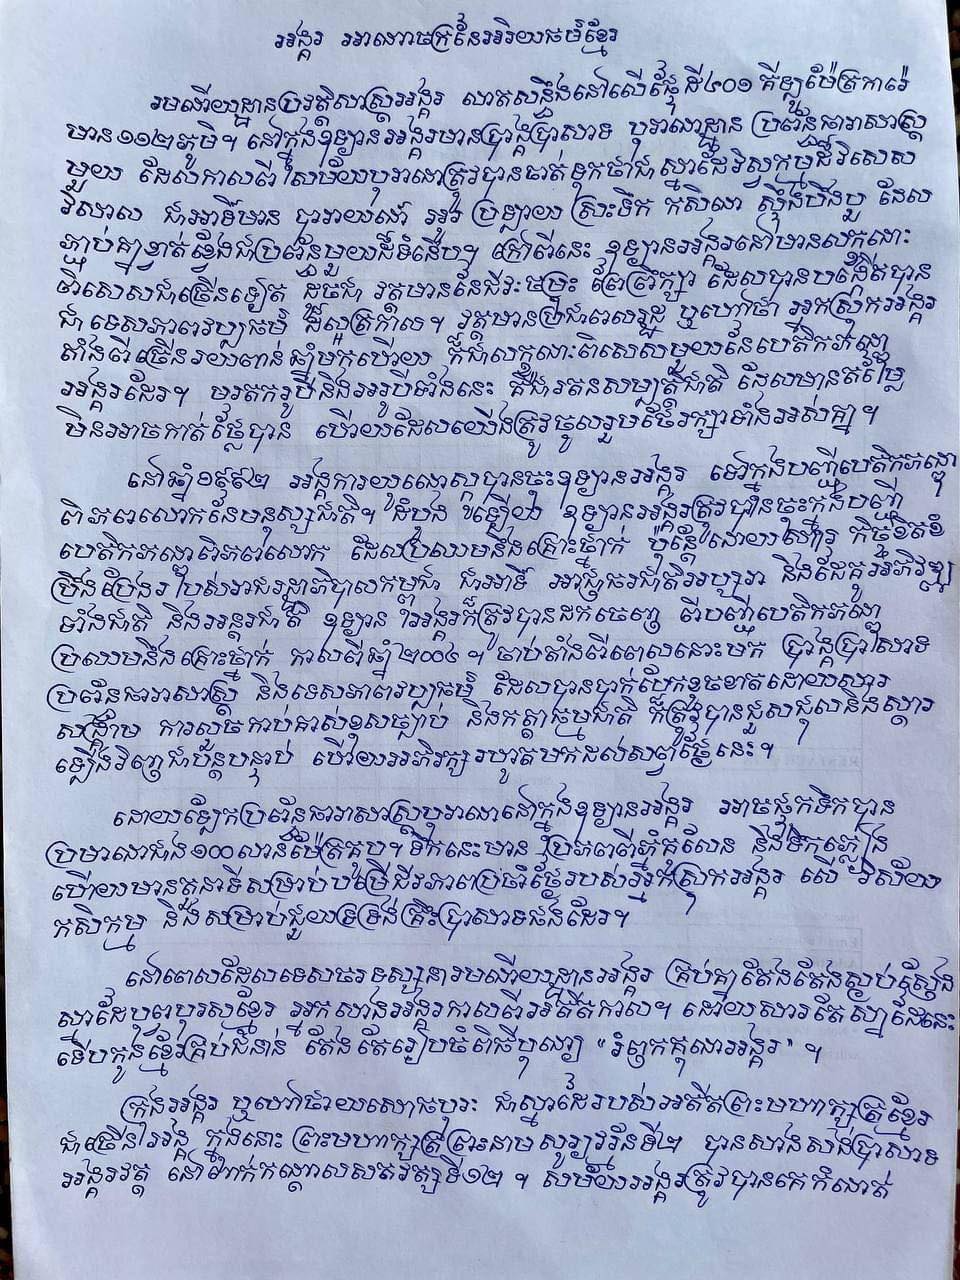 អង្គរ អាណាចក្រនៃអរិយធម៌ខ្មែរ
រមណីយដ្ឋានប្រវត្តិសាស្ត្រអង្គរ លាតសន្ធឹងនៅលើផ្ទៃដី៤០១ គីឡូម៉ែត្រការ៉េ
មាន១១២ភូមិ។ នៅក្នុងឧទ្យានអង្គរមានប្រាង្គប្រាសាទ បុរាណដ្ឋាន ប្រព័ន្ធធារាសាស្ត្រ
មួយ ដែលកាលពីសម័យបុរាណត្រូវបានចាត់ទុកថាជាស្នាដៃវិស្វកម្មដ៏វិសេស
វិសាល ជាអាទិ៍មាន បារាយណ៍ អូរ ប្រឡាយ ស្រះទឹក កសិណ ស្ទឹងបឹងបួ ដែល
ភ្ជាប់គ្នាខ្វាត់ខ្វែងជាប្រព័ន្ធមួយដ៏ទំនើប។ ក្រៅពីនេះ ឧទ្យានអង្គរនៅមានលក្ខណៈ
ពិសេសជាច្រើនទៀត ដូចជា វត្តមាននៃជីវៈចម្រុះ ព្រៃព្រឹក្សា ដែលបានបង្កើតបាន
ជាទេសភាពវប្បធម៌ ដ៏ល្អត្រកាល។ វត្តមានប្រជាពលរដ្ឋ ឬហៅថា អ្នកស្រុកអង្គរ
តាំងពីច្រើនរយពាន់ឆ្នាំមកហើយ ក៏ជាលក្ខណៈពិសេសមួយនៃបេតិកភណ្ឌ
អង្គរដែរ។ មរតករូបីនិងអរូបីទាំងនេះ គឺជារតនសម្បត្តិជាតិ ដែលមានតម្លៃ
មិនអាចកាត់ថ្លៃបាន ហើយដែលយើងត្រូវចូលរួមថែរក្សាទាំងអស់គ្នា។
នៅឆ្នាំ១៩៩២ អង្គការយូណេស្កូបានចុះឧទ្យានអង្គរ ទៅក្នុងបញ្ជីបេតិកភណ្ឌ
ពិភពលោកនៃមនុស្សជាតិ។ ដំបូង ឡើយ ឧទ្យានអង្គរត្រូវបានចុះក្នុងបញ្ជី
បេតិកភណ្ឌពិភពលោក ដែលប្រឈមនឹងគ្រោះថ្នាក់ ប៉ុន្តែ ដោយសារ កិច្ចខិតខំ
ប្រឹងប្រែងរបស់រាជរដ្ឋាភិបាលកម្ពុជា ជាអាទិ៍ អាជ្ញាធរជាតិអប្សរា និងដៃគូអភិវឌ្ឍ
ទាំងជាតិ និងអន្តរជាតិ ឧទ្យានអង្គរក៏ត្រូវបានដកចេញ ពីបញ្ជីបេតិកភណ្ឌ
ប្រឈមនឹងគ្រោះថ្នាក់ កាលពីឆ្នាំ២០០៤។ ចាប់តាំងពីពេលនោះមក ប្រាង្គប្រាសាទ
ប្រព័ន្ធធារាសាស្ត្រ និងទេសភាពវប្បធម៌ ដែលបានបាក់បែកខូចខាតដោយសារ
សង្គ្រាម ការលួចកាប់គាស់ខុសច្បាប់ និងកត្តាធម្មជាតិ ក៏ត្រូវបានជួសជុលនិងស្តារ
ឡើងវិញជាបន្តបន្ទាប់ ហើយអភិរក្សរហូតមកដល់សព្វថ្ងៃនេះ។
ដោយឡែកប្រព័ន្ធធារាសាស្ត្របុរាណនៅក្នុងឧទ្យានអង្គរ អាចផ្ទុកទឹកបាន
ប្រមាណជាង១០០លានម៉ែត្រគូប។ ទឹកនេះមាន ប្រភពពីភ្នំគូលែន និងទឹកភ្លៀង
ហើយមានតួនាទីសម្រាប់បម្រើជីវភាពប្រចាំថ្ងៃរបស់អ្នកស្រុកអង្គរ លើ វិស័យ
កសិកម្ម និងសម្រាប់ជួយទ្រទ្រង់គ្រឹះប្រាសាទផងដែរ។
នៅពេលដែលទេសចរទស្សនារមណីយដ្ឋានអង្គរ គ្រប់គ្នាតែងតែងស្ងប់ស្ងែង
ស្នាដៃបុព្វបុរសខ្មែរ អ្នកសាងអង្គរកាលពីអតីតកាល។ ដោយសារតែស្នាដៃនេះ
ទើបកូនខ្មែរគ្រប់ជំនាន់ តែងតែរៀបចំពិធីបុណ្យ "រំឭកគុណអង្គរ"។
ក្រុងអង្គរ ឬហៅថាយសោធបុរៈ ជាស្នាដៃរបស់អតីតព្រះមហាក្សត្រខ្មែរ
ជាច្រើនអង្គ ក្នុងនោះ ព្រះមហាក្សត្រព្រះនាម សូរ្យវរ្ម័នទី២ បានសាងសង់ប្រាសាទ
អង្គរវត្ត នៅពាក់កណ្តាលសតវត្សទី១២។ សម័យអង្គរត្រូវបានគេកំណត់